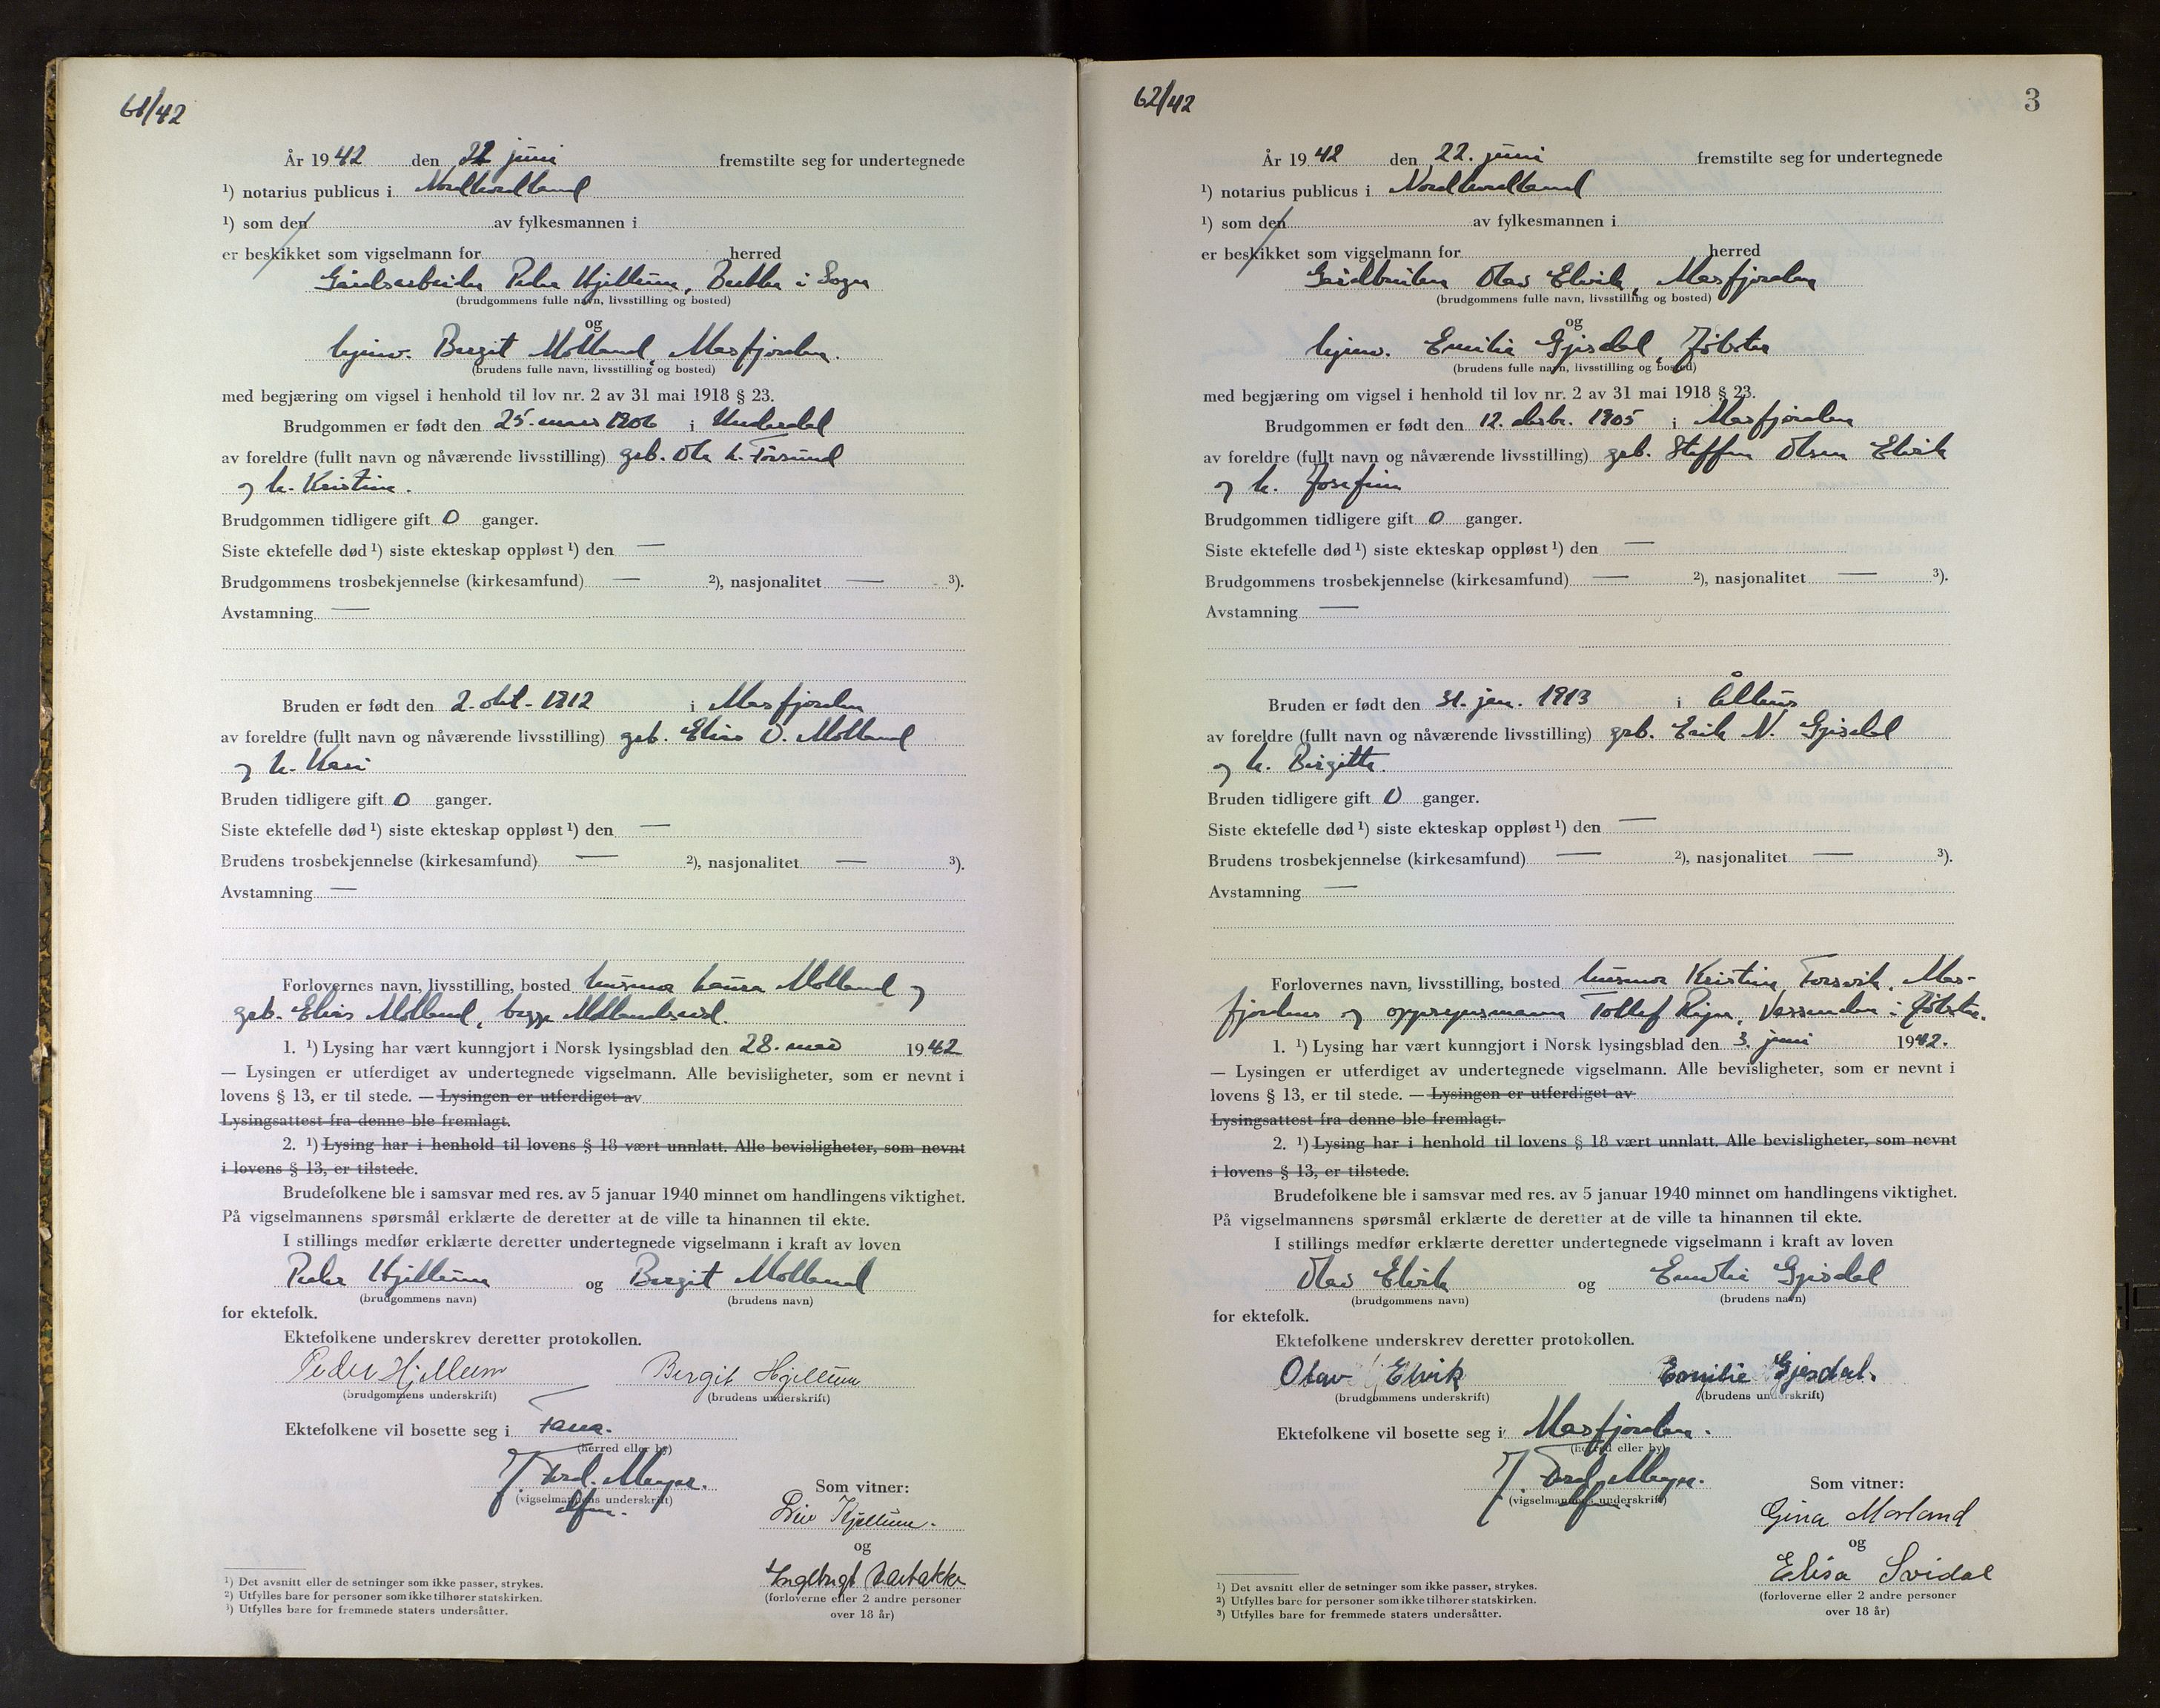 61/42
År 1942 den 22 juni fremstilte seg for undertegnede
¹) notarius publicus i Nordhordland
¹) som den av fylkesmannen i
er beskikket som vigselmann for herred
Gårdsarbeider Peder Hjellum, i Sogn
(brudgommens fulle navn, livsstilling og bosted)
og
hjemv. Bergit Molland, Masfjorden.
(brudens fulle navn, livsstilling og bosted)
med begjæring om vigsel i henhold til lov nr. 2 av 31 mai 1918 § 23.
Brudgommen er født den 25. mars 1906 i Underdal
av foreldre (fullt navn og nåværende livsstilling) gbr. Ole L. Torsund
og h. Kristine.
Brudgommen tidligere gift 0 ganger.
Siste ektefelle død ¹) siste ekteskap oppløst ¹) den —
Brudgommens trosbekjennelse (kirkesamfund) — ²), nasjonalitet — ³).
Avstamning —
Bruden er født den 2. okt. 1912 i Masfjorden
av foreldre (fullt navn og nåværende livsstilling) gbr. Elias O. Molland
og h. Kari
Bruden tidligere gift 0 ganger.
Siste ektefelle død ¹) siste ekteskap oppløst ¹) den —
Brudens trosbekjennelse (kirkesamfund) — ²), nasjonalitet — ³).
Avstamning —
Forlovernes navn, livsstilling, bosted husmor Laura Molland og
gbr. Elias Molland, begge
1. ¹) Lysing har vært kunngjort i Norsk lysingsblad den 28. mai 1942
— Lysingen er utferdiget av undertegnede vigselmann. Alle bevisligheter, som er nevnt i
lovens § 13, er til stede. — Lysingen er utferdiget av
Lysingsattest fra denne ble fremlagt.
2. ¹) Lysing har i henhold til lovens § 18 vært unnlatt. Alle bevisligheter, som nevnt
i lovens § 13, er tilstede.
Brudefolkene ble i samsvar med res. av 5 januar 1940 minnet om handlingens viktighet.
På vigselmannens spørsmål erklærte de deretter at de ville ta hinannen til ekte.
I stillings medfør erklærte deretter undertegnede vigselmann i kraft av loven
Peder Hjellum og Bergit Molland
(brudgommens navn) (brudens navn)
for ektefolk.
Ektefolkene underskrev deretter protokollen.
Peder Hjellum Bergit Hjellum
(brudgommens underskrift) (brudens underskrift)
Ektefolkene vil bosette seg i Fana.
(herred eller by)
Ferd. Meyer.
(vigselmannens underskrift)
Som vitner:
Hjellum.
og
Ingebrigt
(forloverne eller 2 andre personer
over 18 år)
¹) Det avsnitt eller de setninger som ikke passer, strykes.
²) Utfylles bare for personer som ikke tilhører statskirken.
³) Utfylles bare for fremmede staters undersåtter.
62/42
3
År 1942 den 22. juni fremstilte seg for undertegnede
¹) notarius publicus i Nordhordland
¹) som den av fylkesmannen i
er beskikket som vigselmann for herred
Gårdbruker Olav Elvik, Masfjorden
(brudgommens fulle navn, livsstilling og bosted)
og
hjemv. Emilie Gjesdal, Jølster
(brudens fulle navn, livsstilling og bosted)
med begjæring om vigsel i henhold til lov nr. 2 av 31 mai 1918 § 23.
Brudgommen er født den 12. desbr. 1905 i Masfjorden
av foreldre (fullt navn og nåværende livsstilling) gbr. Steffen Olsen Elvik
og h. Josefine
Brudgommen tidligere gift 0 ganger.
Siste ektefelle død ¹) siste ekteskap oppløst ¹) den —
Brudgommens trosbekjennelse (kirkesamfund) — ²), nasjonalitet — ³).
Avstamning —
Bruden er født den 31. jan. 1913 i Ålhus
av foreldre (fullt navn og nåværende livsstilling) gbr. Erik N. Gjesdal
og h. Birgitte.
Bruden tidligere gift 0 ganger.
Siste ektefelle død ¹) siste ekteskap oppløst ¹) den —
Brudens trosbekjennelse (kirkesamfund) — ²), nasjonalitet — ³).
Avstamning —
Forlovernes navn, livsstilling, bosted husmor Kristine Torsvik, Mas-
fjorden og oppsynsmann Tollef Vassenden i Jølster.
1. ¹) Lysing har vært kunngjort i Norsk lysingsblad den 3. juni 1942.
— Lysingen er utferdiget av undertegnede vigselmann. Alle bevisligheter, som er nevnt i
lovens § 13, er til stede. — Lysingen er utferdiget av
Lysingsattest fra denne ble fremlagt.
2. ¹) Lysing har i henhold til lovens § 18 vært unnlatt. Alle bevisligheter, som nevnt
i lovens § 13, er tilstede.
Brudefolkene ble i samsvar med res. av 5 januar 1940 minnet om handlingens viktighet.
På vigselmannens spørsmål erklærte de deretter at de ville ta hinannen til ekte.
I stillings medfør erklærte deretter undertegnede vigselmann i kraft av loven
Olav Elvik og Emilie Gjesdal
(brudgommens navn) (brudens navn)
for ektefolk.
Ektefolkene underskrev deretter protokollen.
Olav Elvik Emilie Gjesdal.
(brudgommens underskrift) (brudens underskrift)
Ektefolkene vil bosette seg i Masfjorden.
(herred eller by)
Ferd. Meyer.
(vigselmannens underskrift)
Som vitner:
Gina Morland
og
Elisa Svidal
(forloverne eller 2 andre personer
over 18 år)
¹) Det avsnitt eller de setninger som ikke passer, strykes.
²) Utfylles bare for personer som ikke tilhører statskirken.
³) Utfylles bare for fremmede staters undersåtter.